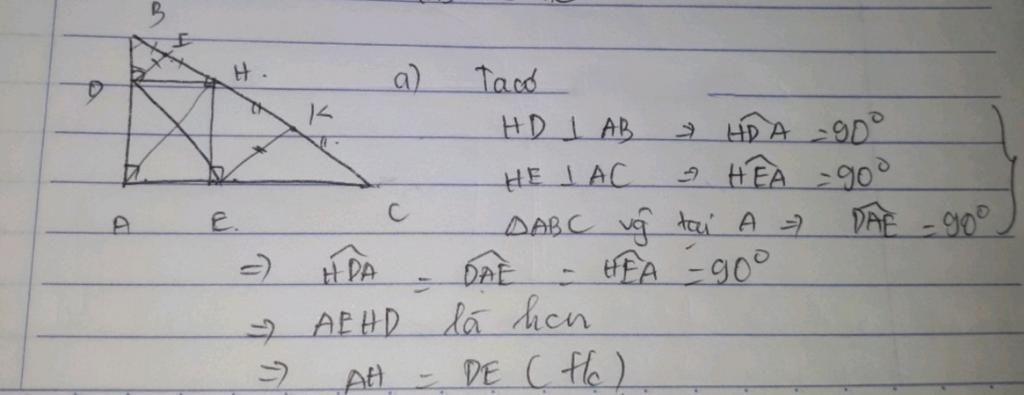 B
I
D
H.
K
A
E.
C
a) Ta có
HD ⊥ AB ⇒ \widehat{HDA} = 90°
HE ⊥ AC ⇒ \widehat{HEA} = 90°
ΔABC vg tại A ⇒ \widehat{DAE} = 90°
⇒ \widehat{HDA} = \widehat{DAE} = \widehat{HEA} = 90°
⇒ AEHD là hcn
⇒ AH = DE (t/c)